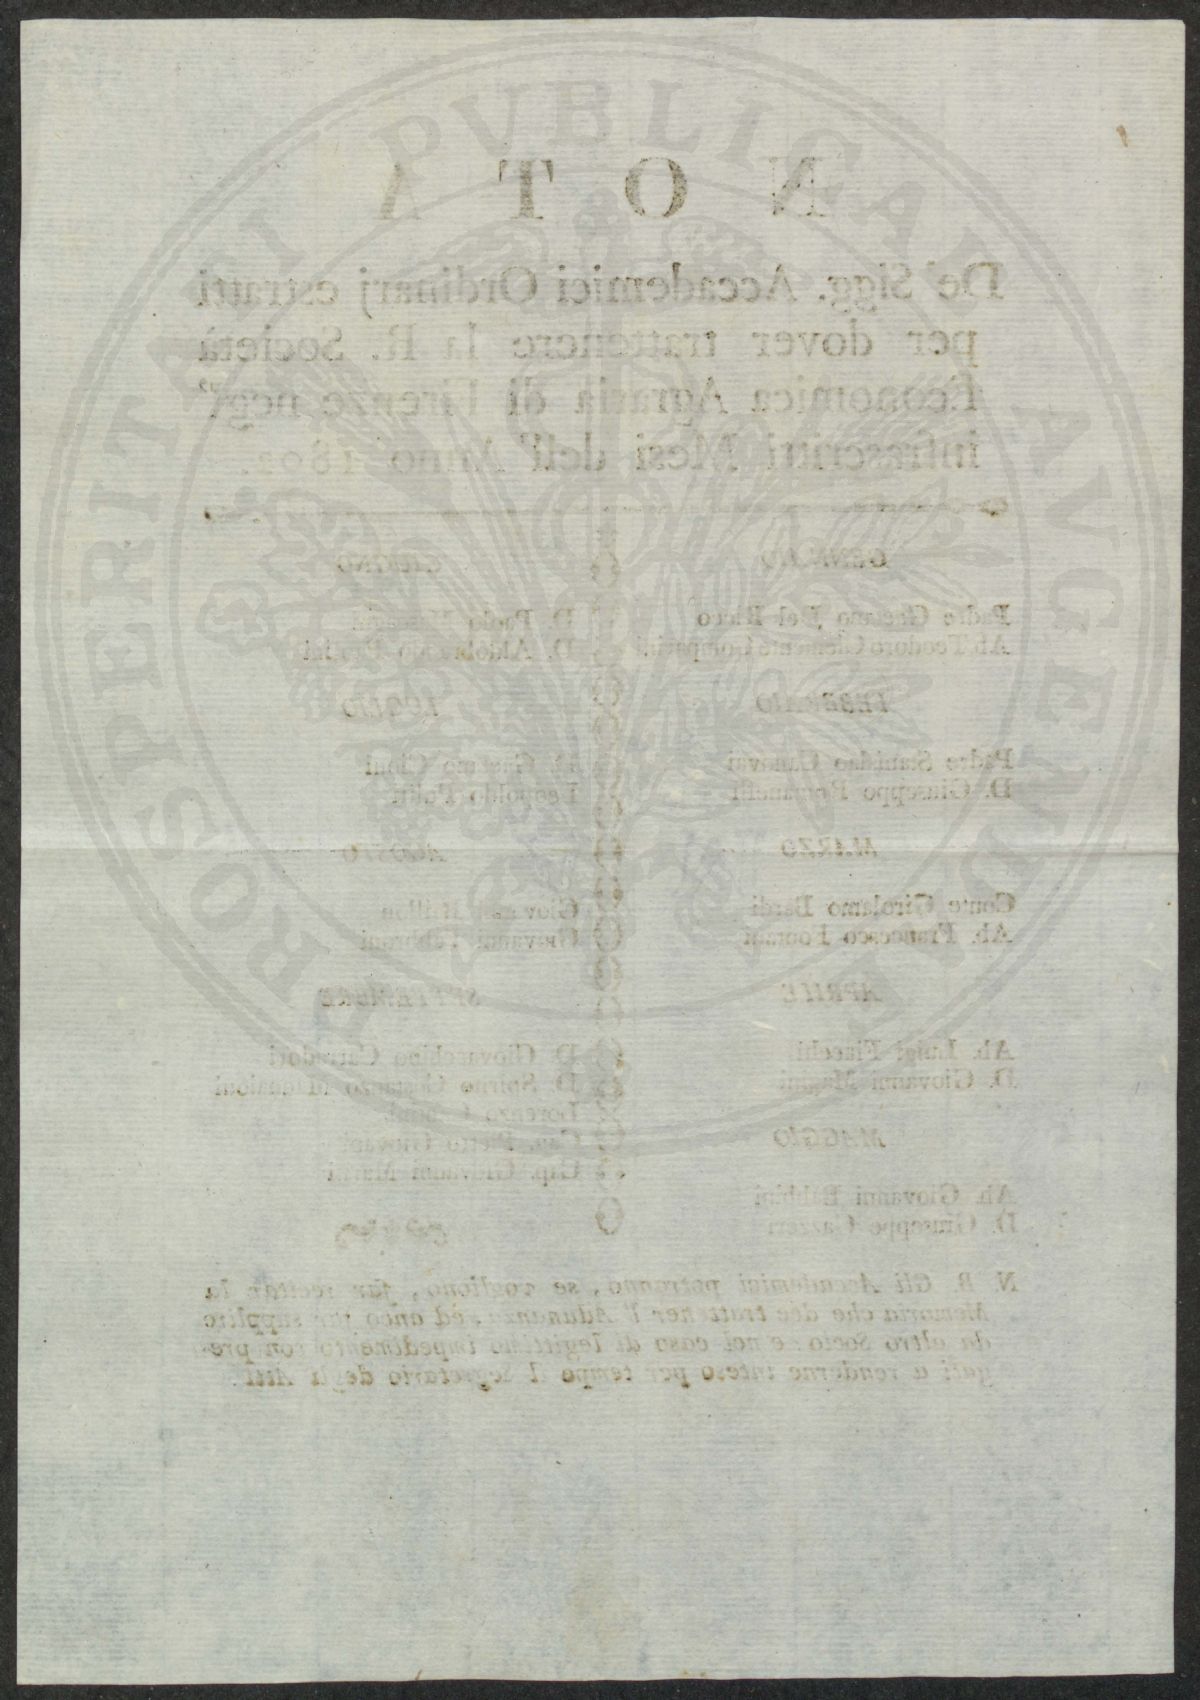 PROSPERITATI PVBLICAE AVGENDAE
NOTA
De' Sigg. Accademici Ordinarj estratti
per dover trattenere la R. Società
Economica Agraria di Firenze negl'
infrascritti Mesi dell' Anno
GENNAIO
Padre Gaetano Del Ricco
Ab. Teodoro Clemente
FEBBRAIO
Padre Stanislao Canovai
D. Giuseppe
MARZO
Conte Girolamo Bardi
Ab. Francesco
APRILE
Ab. Luigi Fiacchi
D. Giovanni
MAGGIO
Ab. Giovanni Babbini
D. Giuseppe Gazzeri
GIUGNO
D. Paolo
D. Aldobrando Paolini
LUGLIO
D. Gaetano Cioni
Leopoldo
AGOSTO
Giovanni
Giovanni Fabbroni
SETTEMBRE
D. Giovacchino Carradori
D. Spirito Costanzo Mannaioni
Lorenzo
Can. Pietro
Cap. Giovanni
N. B. Gli Accademici potranno, se vogliono, far recitar la
Memoria che dee trattener l'Adunanza, ed anco far supplire
da altro Socio: e nel caso di legittimo impedimento son pre-
gati a renderne inteso per tempo il Segretario degli Atti.